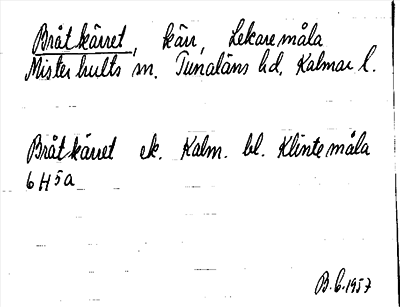 Bråtkärret, kärr, Lekaremåla
Misterhults sn. Tunaläns hd, Kalmar l.
Bråtkärret ek. Kalm. bl. Klintemåla
6H5a
B.G.1957